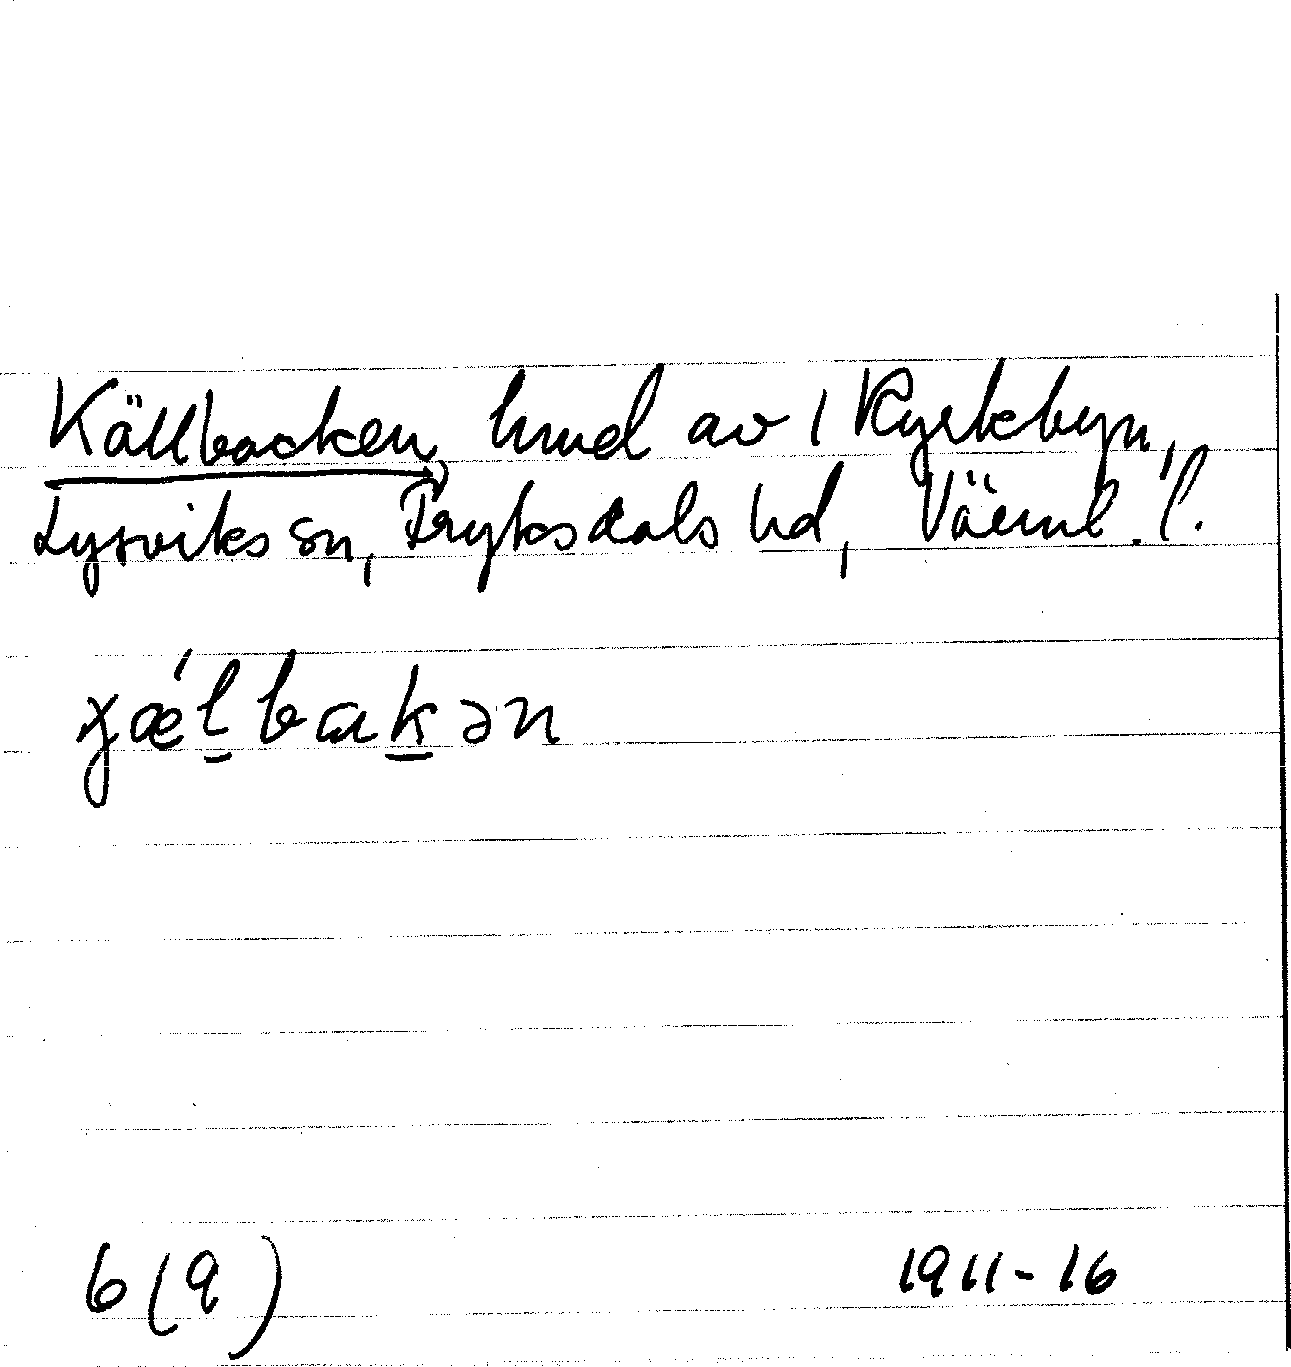 Källbacken, hmd av 1 Kyrkbyn,
Lysviks sn, Fryksdals hd, Värml. l.
χǽl̠bak̠ən
6 (9)
1911-16